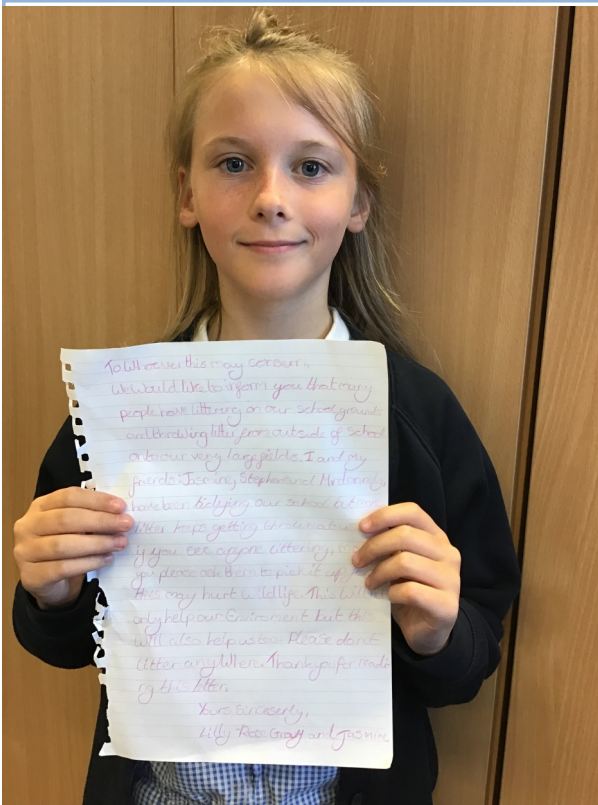 To Whoever this may consern,
We Would like to inform you that many
people have littering on our school grounds
and throwing litter from outside of school
onto our very large fields. I and my
friends: Jasmine, Stephan and
have been tidying our school but
litter keeps getting thrown
if you see anyone littering,
you please ask them to pick it up
this may hurt wildlife. This will
only help our Enviroment but
will also help us too. Please don't
litter anyWhere. Thankyou for readi
ng this letter.
Yours Sincerely,
Lilly-Rose and Jasmine